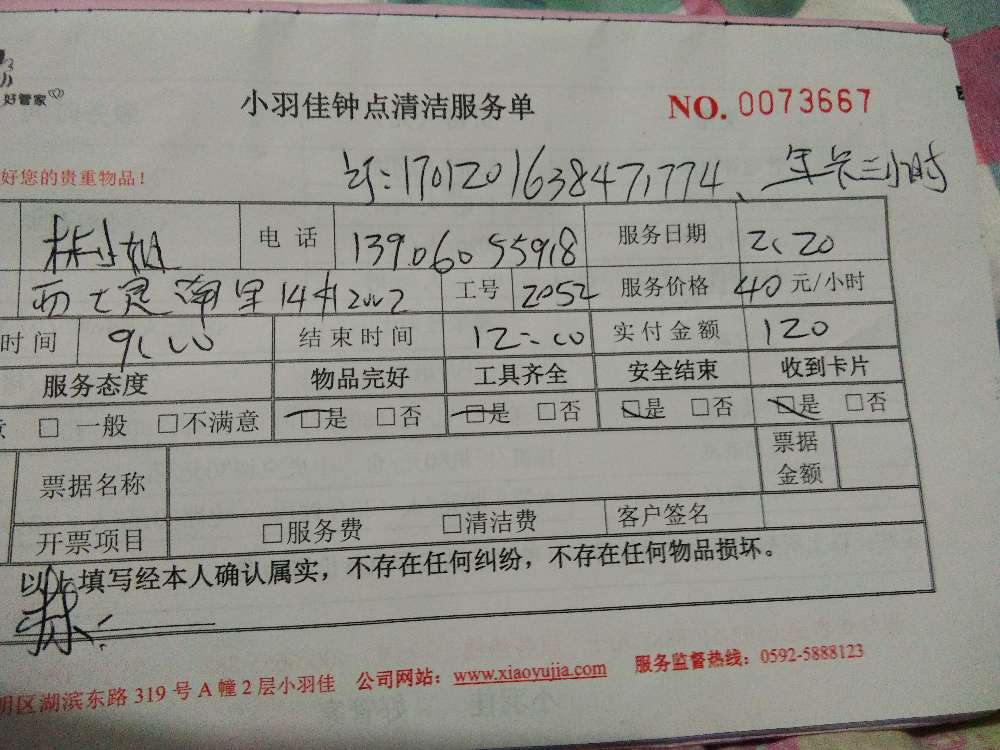 好管家
小羽佳钟点清洁服务单 NO. 0073667
好您的贵重物品!
170120163847,774、年卡三小时
林小姐 电话 13906055918 服务日期 2、20
里14 2002 工号 2052 服务价格 40元/小时
时间 9:00 结束时间 12:00 实付金额 120
服务态度 物品完好 工具齐全 安全结束 收到卡片
□ 一般 □不满意 □是 □否 □是 □否 □是 □否 □是 □否
票据名称 票据金额
开票项目 □服务费 □清洁费 客户签名
以上填写经本人确认属实，不存在任何纠纷，不存在任何物品损坏。
明区湖滨东路 319 号 A 幢 2 层小羽佳 公司网站：www.xiaoyujia.com 服务监督热线：0592-5888123